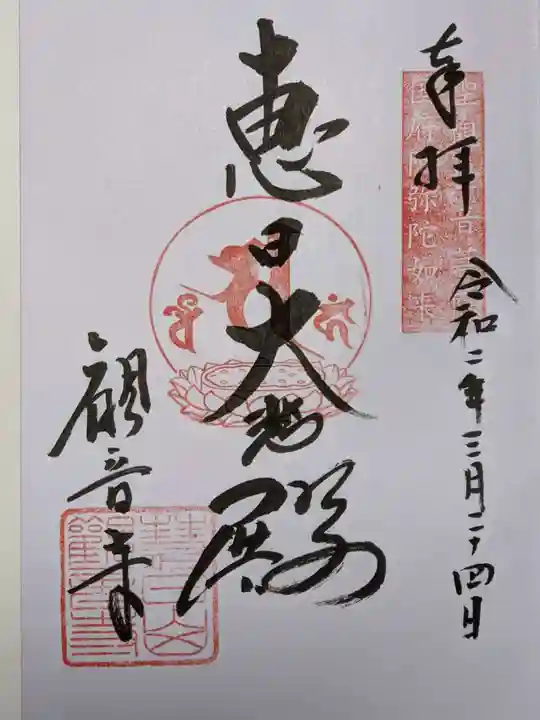 奉拝
聖観世音菩薩
国府阿弥陀如来
令和二年三月二十四日
恵日大悲殿
観音寺